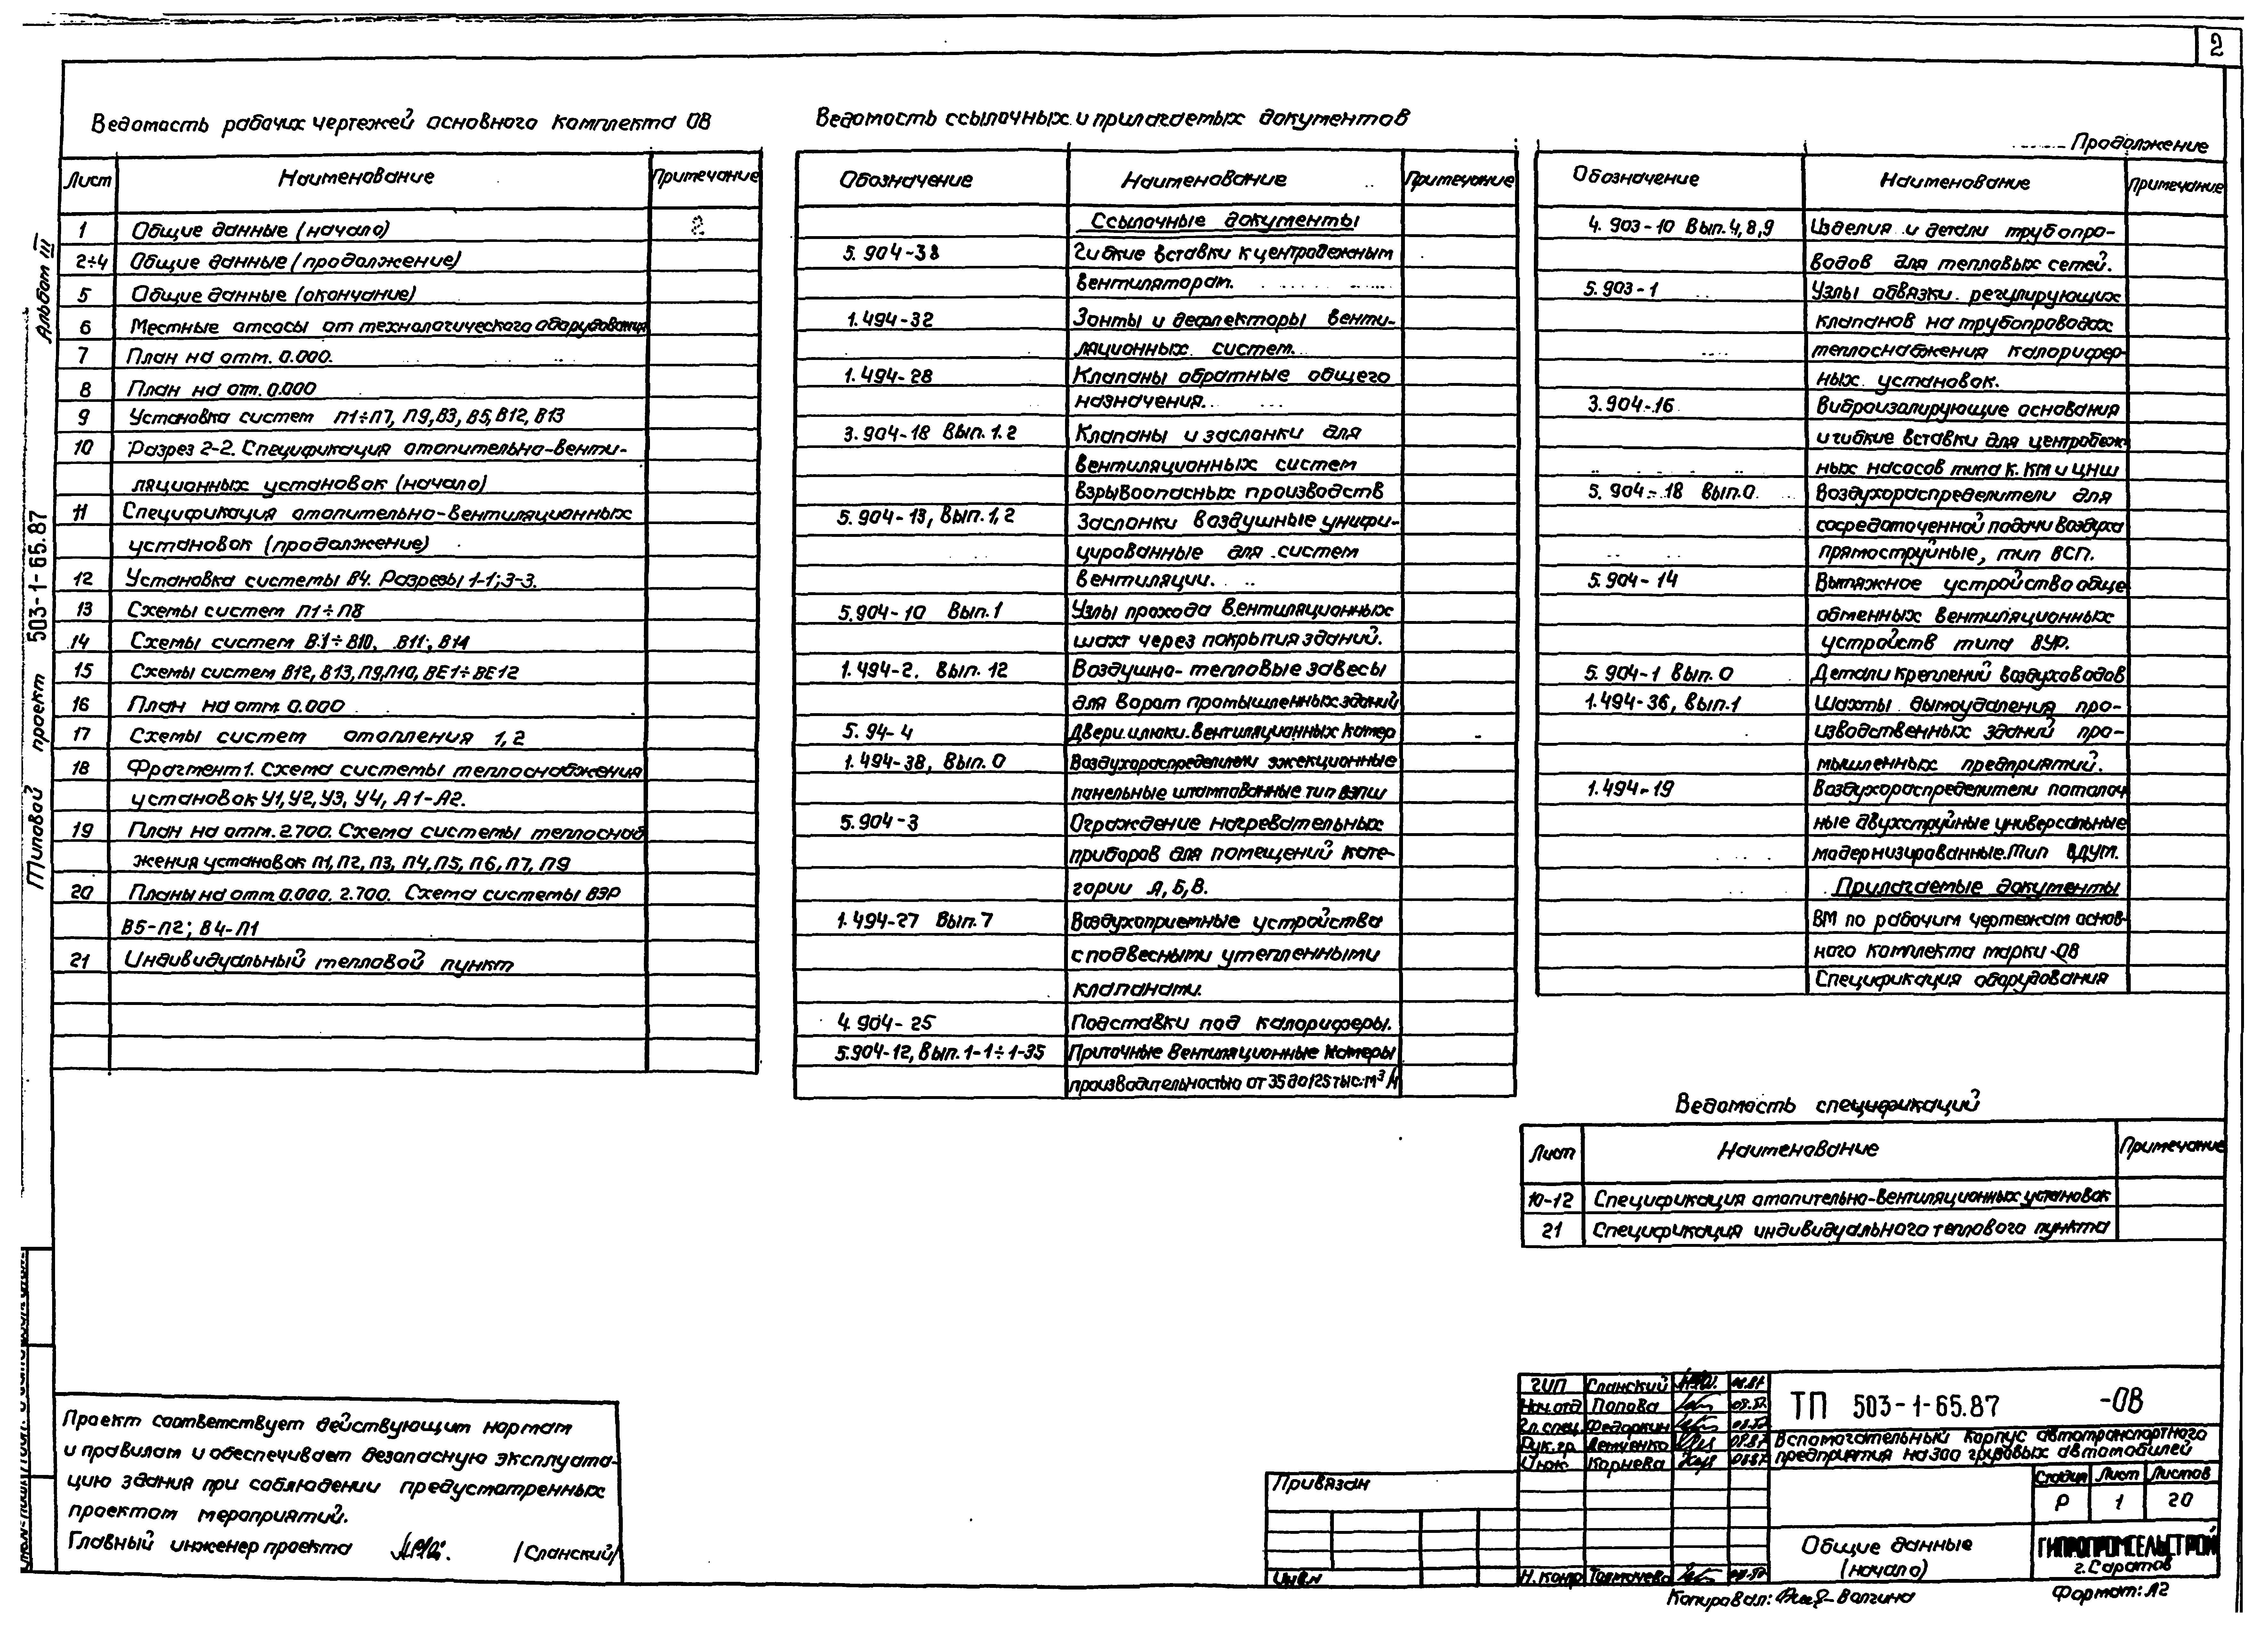 2
Ведомость рабочих чертежей основного комплекта ОВ
Лист Наименование Примечание
1 Общие данные (начало) 2
2÷4 Общие данные (продолжение)
5 Общие данные (окончание)
6 Местные отсосы от технологического оборудования
7 План на отм. 0.000.
8 План на отм. 0.000
9 Установка систем П1÷П7, П9, В3, В5, В12, В13
10 Разрез 2-2. Спецификация отопительно-венти-
ляционных установок (начало)
11 Спецификация отопительно-вентиляционных
установок (продолжение)
12 Установка системы В4. Разрезы 1-1; 3-3.
13 Схемы систем П1÷П8
14 Схемы систем В1÷В10, В11; В14
15 Схемы систем В12, В13, П9, П10, ВЕ1÷ВЕ12
16 План на отм. 0.000
17 Схемы систем отопления 1, 2
18 Фрагмент 1. Схема системы теплоснабжения
установок У1, У2, У3, У4, А1-А2.
19 План на отм. 2.700. Схема системы теплоснаб
жения установок П1, П2, П3, П4, П5, П6, П7, П9
20 Планы на отм 0.000. 2.700. Схема системы ВЭР
В5-П2; В4-П1
21 Индивидуальный тепловой пункт
Ведомость ссылочных и прилагаемых документов
Обозначение Наименование Примечание
Ссылочные документы
5.904-38 Гибкие вставки к центробежным
вентиляторам.
1.494-32 Зонты и дефлекторы венти-
ляционных систем.
1.494-28 Клапаны обратные общего
назначения.
3.904-18 Вып. 1.2 Клапаны и заслонки для
вентиляционных систем
взрывоопасных производств
5.904-13, Вып. 1, 2 Заслонки воздушные унифи-
цированные для систем
вентиляции.
5.904-10 Вып. 1 Узлы прохода вентиляционных
шахт через покрытия зданий.
1.494-2. Вып. 12 Воздушно-тепловые завесы
для ворот промышленных зданий
5.94-4 Двери и люки вентиляционных камер
1.494-38, Вып. 0 Воздухораспределители эжекционные
панельные штампованные тип ВЭПШ
5.904-3 Ограждение нагревательных
приборов для помещений кате-
гории А, Б, В.
1.494-27 Вып. 7 Воздухоприемные устройства
с подвесными утепленными
клапанами.
4.904-25 Подставки под калориферы.
5.904-12, Вып. 1-1÷1-35 Приточные вентиляционные камеры
производительностью от 35 до 125 тыс. м³/ч
Продолжение
Обозначение Наименование Примечание
4.903-10 Вып. 4, 8, 9 Изделия и детали трубопро-
водов для тепловых сетей.
5.903-1 Узлы обвязки регулирующих
клапанов на трубопроводах
теплоснабжения калорифер-
ных установок.
3.904-16 Виброизолирующие основания
и гибкие вставки для центробеж-
ных насосов типа К. КМ и ЦНШ
5.904-18 Вып. 0 Воздухораспределители для
сосредоточенной подачи воздуха
прямоструйные, тип ВСП.
5.904-14 Вытяжное устройство обще
обменных вентиляционных
устройств типа ВУР.
5.904-1 Вып. 0 Детали креплений воздуховодов
1.494-36, Вып. 1 Шахты дымоудаления про-
изводственных зданий про-
мышленных предприятий.
1.494-19 Воздухораспределители потолоч
ные двухструйные универсальные
модернизированные. Тип ВДУМ.
Прилагаемые документы
ВМ по рабочим чертежам основ-
ного комплекта марки ОВ
Спецификация оборудования
Ведомость спецификаций
Лист Наименование Примечание
10-12 Спецификация отопительно-вентиляционных установок
21 Спецификация индивидуального теплового пункта
Альбом III
Типовой проект 503-1-65.87
Проект соответствует действующим нормам
и правилам и обеспечивает безопасную эксплуата-
цию здания при соблюдении предусмотренных
проектом мероприятий.
Главный инженер проекта /Сланский/
Привязан
Инв.N
ГИП Сланский 08.87
Нач.отд Попова 08.87
Гл.спец Федоркин 08.87
Рук.гр. 08.87
Инж Корнева 08.87
Н.контр Толмачева 08.87
ТП 503-1-65.87 -ОВ
Вспомогательный корпус автотранспортного
предприятия на 300 грузовых автомобилей
Стадия Лист Листов
Р 1 20
Общие данные
(начало)
ГИПРОПРОМСЕЛЬСТРОЙ
г. Саратов
Копировал: Волгина
Формат: А2